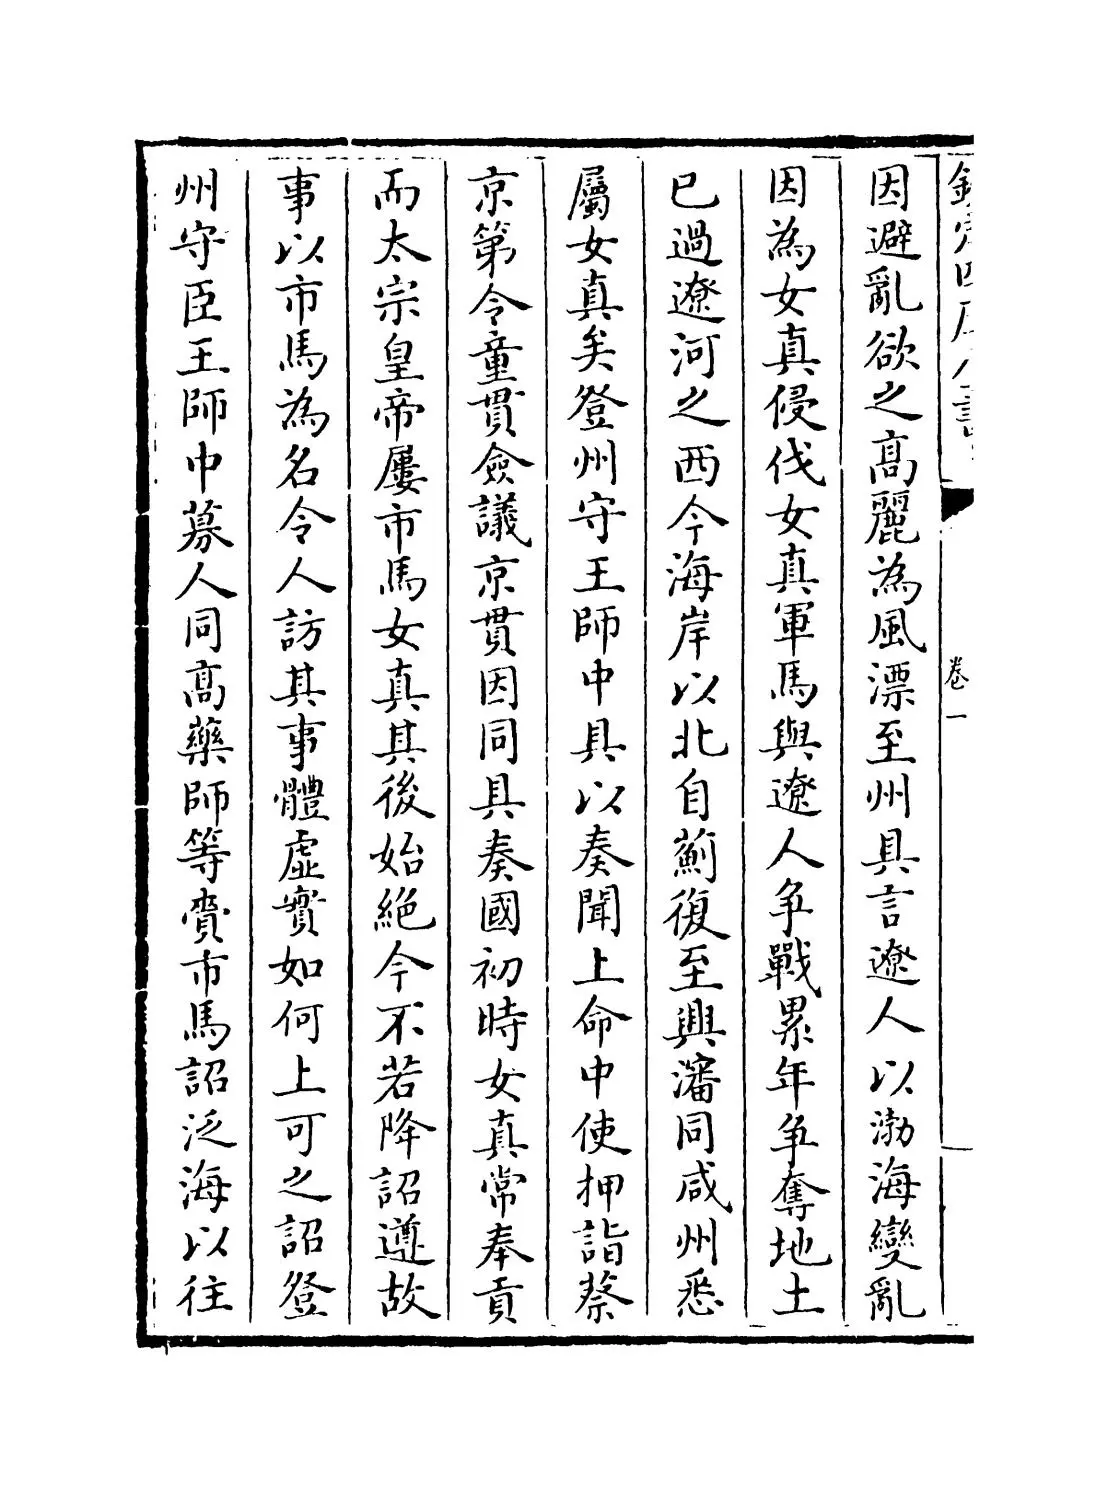 卷一
因避亂欲之髙麗為風漂至州具言遼人以渤海變亂
因為女真侵伐女真軍馬與遼人争戰累年争奪地土
已過遼河之西今海岸以北自薊復至興瀋同咸州悉
屬女真矣登州守王師中具以奏聞上命中使押詣蔡
京第令童貫僉議京貫因同具奏國初時女真常奉貢
而太宗皇帝屢市馬女真其後始絶今不若降詔遵故
事以市馬為名令人訪其事體虛實如何上可之詔登
州守臣王師中募人同髙藥師等賫市馬詔泛海以往